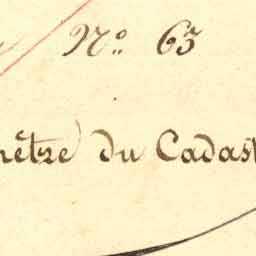 N.º 65
mètre du Cadast